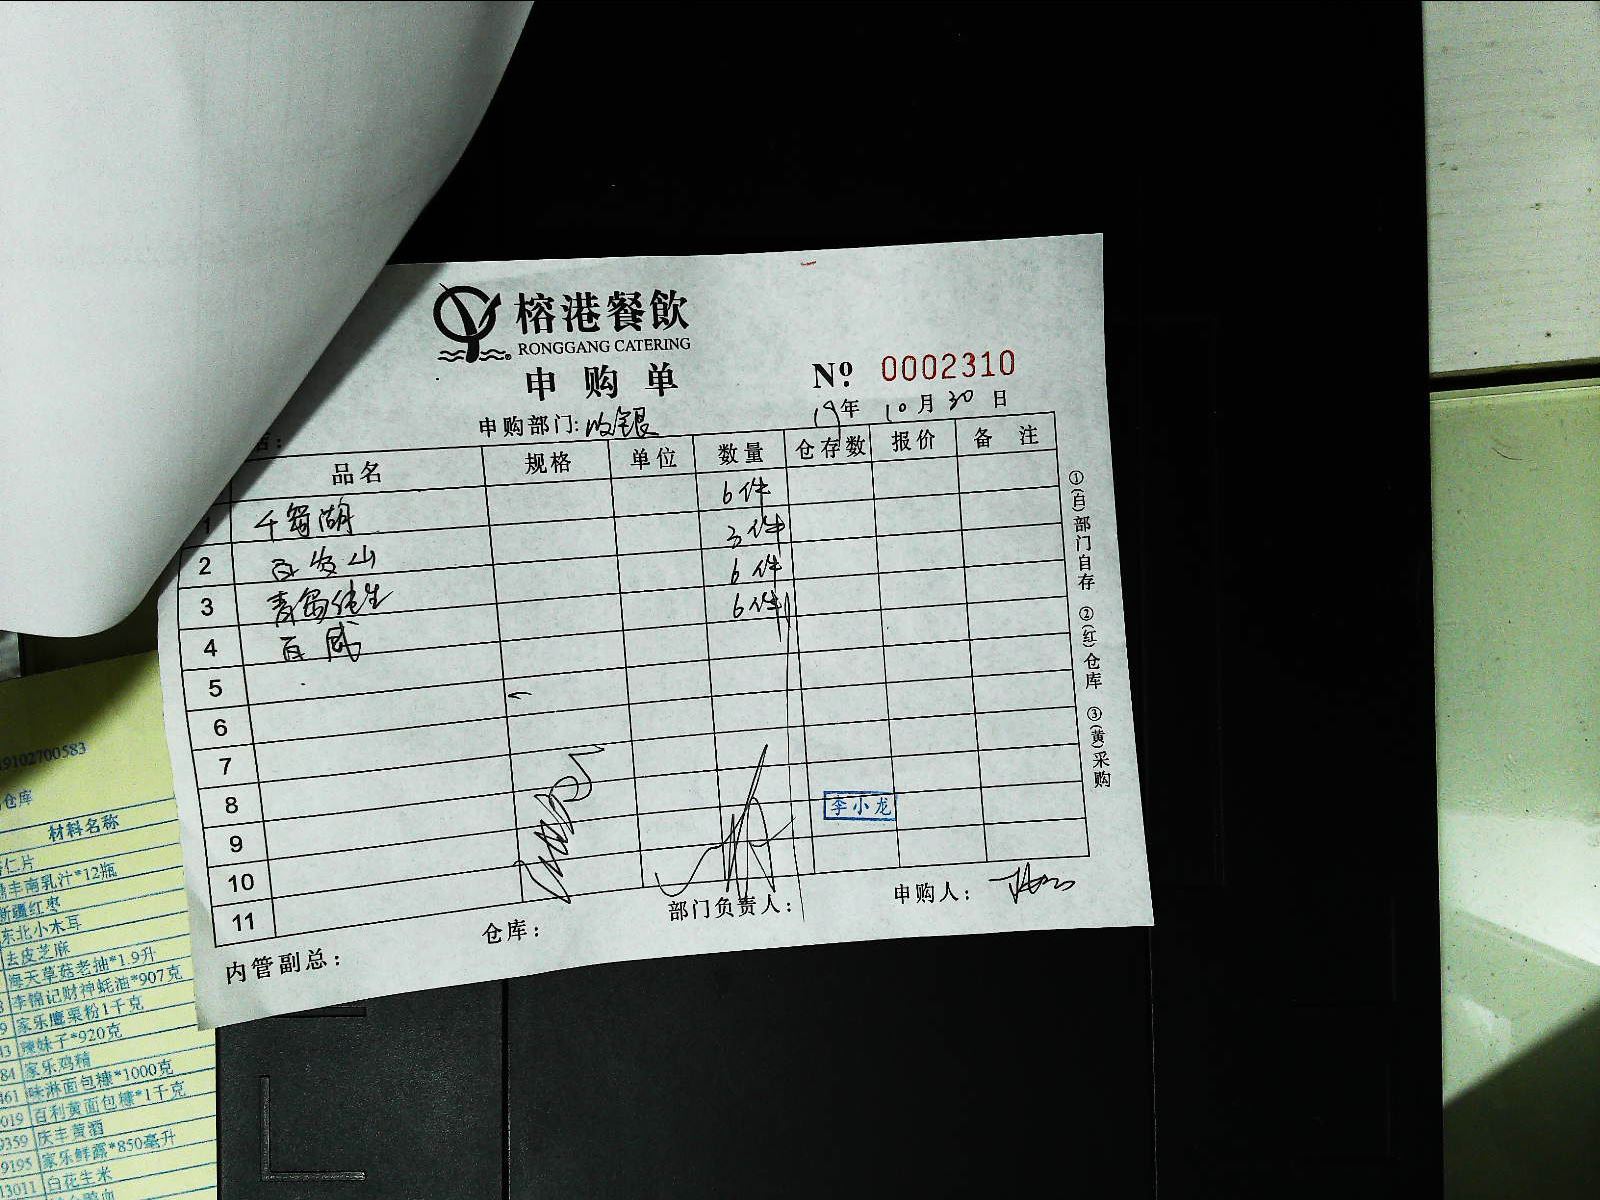 榕港餐飲
RONGGANG CATERING
申购单
Nº: 0002310
申购部门: 收银
19年 10月 30日
品名 规格 单位 数量 仓存数 报价 备注
1 千岛湖 6件
2 百岁山 3件
3 青岛纯生 6件
4 百威 6件
5
6
7
8
9
10
11
李小龙
内管副总:
仓库:
部门负责人:
申购人:
①(白)部门自存 ②(红)仓库 ③(黄)采购
19102700583
仓库
材料名称
仁片
丰南乳汁*12瓶
新疆红枣
东北小木耳
去皮芝麻
海天草菇老抽*1.9升
李锦记财神蚝油*907克
9 家乐鹰粟粉1千克
43 辣妹子*920克
84 家乐鸡精
461 味淋面包糠*1000克
019 百利黄面包糠*1千克
9359 庆丰黄酒
9195 家乐鲜露*850毫升
13011 白花生米